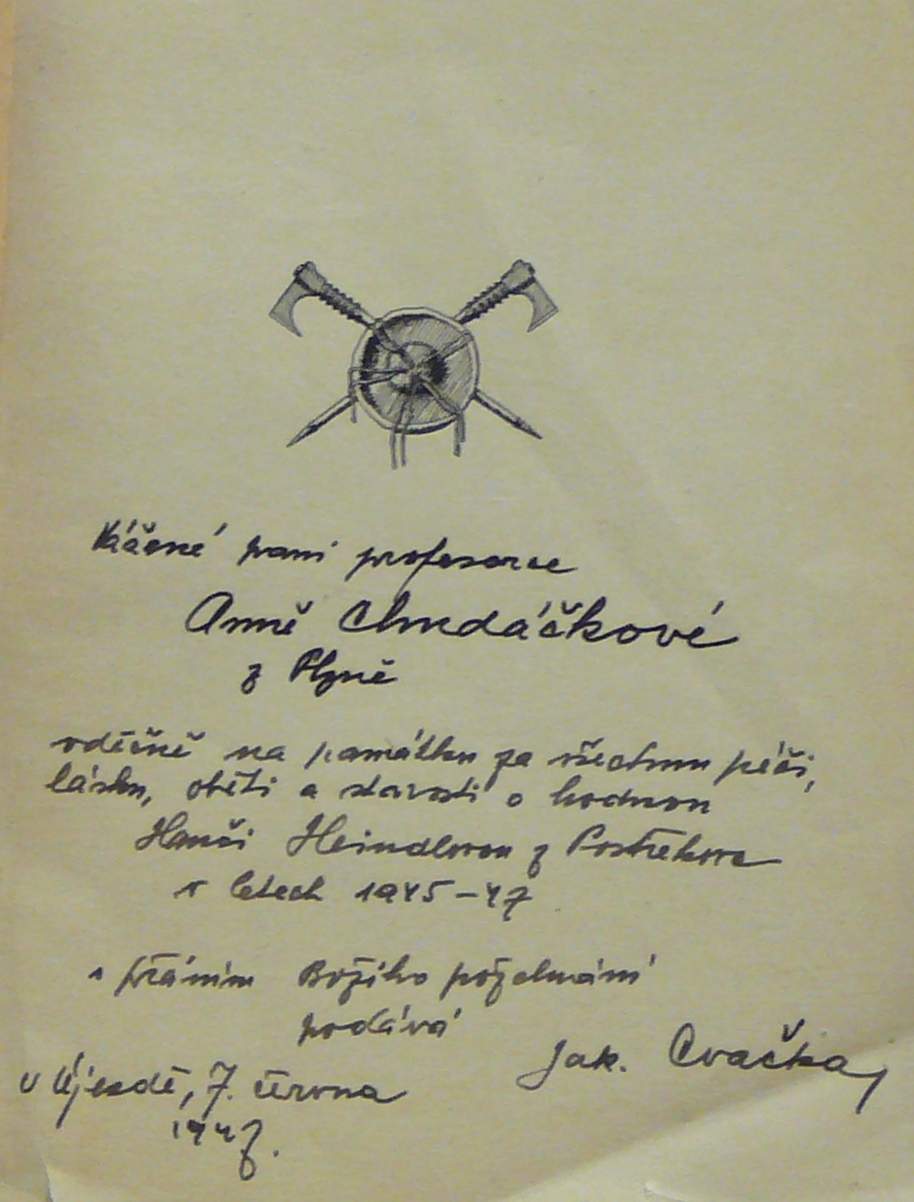 Vážené paní profesorce
Anně Chudáčkové
z Plzně
vděčně na památku za všechnu péči,
lásku, oběti a starosti o hodnou
Hanči Heindlovou z Postřekova
v letech 1945-47
s přáním Božího požehnání
podává
Jak. Cvačka,
V Újezdě, 7. června
1947.